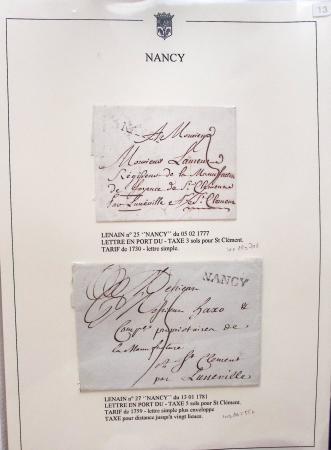 13
NANCY
A Monsieur
Monsieur
Régisseur de la Manufacture
de fayence de St Clement
par Lunéville A St Clement
LENAIN n° 25 "NANCY" du 05 02 1777
LETTRE EN PORT DU - TAXE 3 sols pour St Clément.
TARIF de 1730 - lettre simple.
NANCY
Monsieur haxo
proprietaire de
la Manufacture
St Clement
par Luneville
LENAIN n° 27 "NANCY" du 13 01 1781
LETTRE EN PORT DU - TAXE 5 sols pour St Clément.
TARIF de 1759 - lettre simple plus enveloppe
TAXE pour distance jusqu'à vingt lieues.